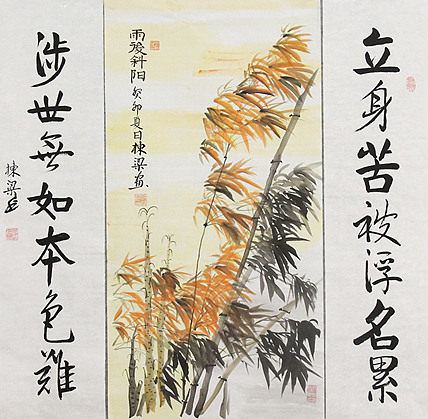 立身苦被浮名累
涉世無如本色難
棟梁書
雨後斜阳 癸卯夏日棟梁画